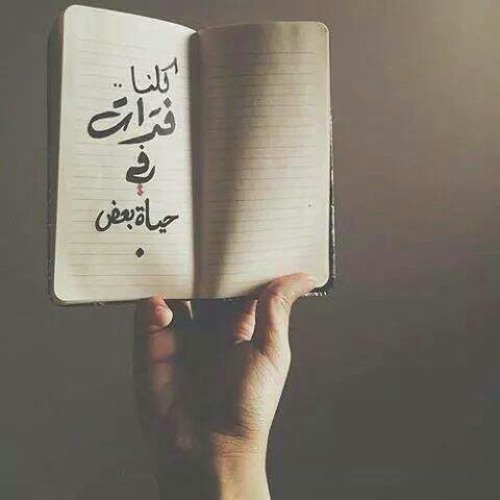 كلنا..
فترات
في
حياة بعض
.